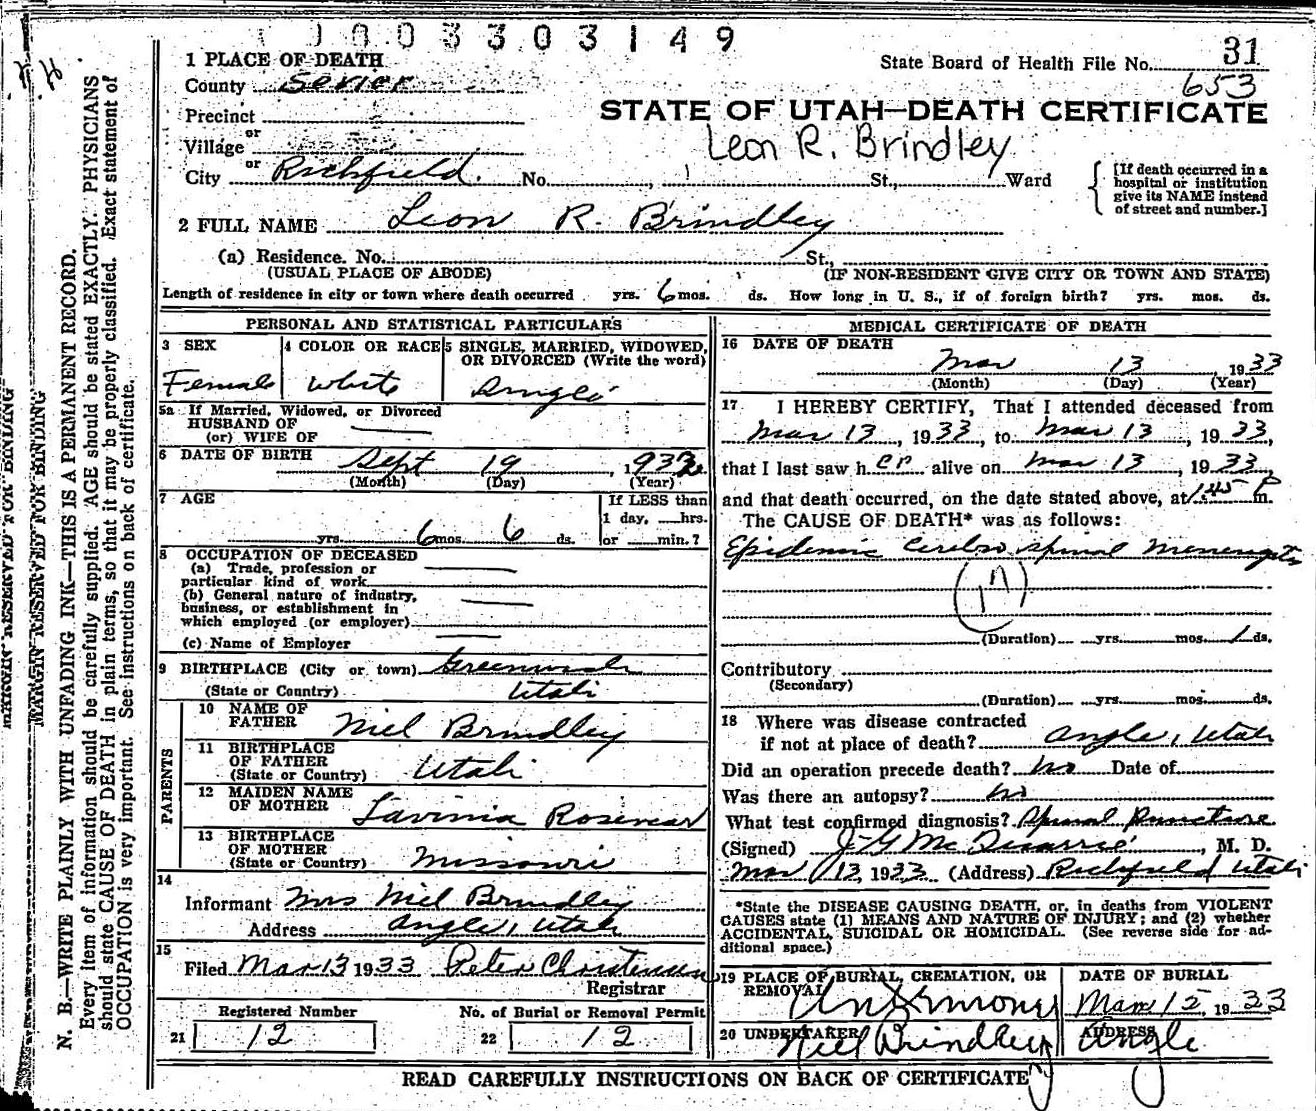 0003303149
1 PLACE OF DEATH
County Sevier
Precinct
or
Village
or
City Richfield. No. St., Ward
State Board of Health File No. 31
653
STATE OF UTAH—DEATH CERTIFICATE
Leon R. Brindley
[If death occurred in a
hospital or institution
give its NAME instead
of street and number.]
2 FULL NAME Leon R. Brindley
(a) Residence. No. St.,
(USUAL PLACE OF ABODE) (IF NON-RESIDENT GIVE CITY OR TOWN AND STATE)
Length of residence in city or town where death occurred yrs. 6 mos. ds. How long in U. S., if of foreign birth? yrs. mos. ds.
PERSONAL AND STATISTICAL PARTICULARS
3 SEX
Female
4 COLOR OR RACE
White
5 SINGLE, MARRIED, WIDOWED,
OR DIVORCED (Write the word)
Single
5a If Married, Widowed, or Divorced
HUSBAND OF
(or) WIFE OF
6 DATE OF BIRTH Sept 19, 1932
(Month) (Day) (Year)
7 AGE
yrs. 6 mos. 6 ds.
If LESS than
1 day, hrs.
or min.?
8 OCCUPATION OF DECEASED
(a) Trade, profession or
particular kind of work
(b) General nature of industry,
business, or establishment in
which employed (or employer)
(c) Name of Employer
9 BIRTHPLACE (City or town) Greenwich
(State or Country) Utah
PARENTS
10 NAME OF
FATHER Niel Brindley
11 BIRTHPLACE
OF FATHER
(State or Country) Utah
12 MAIDEN NAME
OF MOTHER Lavinia Rosenear
13 BIRTHPLACE
OF MOTHER
(State or Country) Missouri
14
Informant Mrs Niel Brindley
Address Angle, Utah
15
Filed Mar 13 1933 Peter Christensen
Registrar
Registered Number
21 12
No. of Burial or Removal Permit
22 12
MEDICAL CERTIFICATE OF DEATH
16 DATE OF DEATH
Mar 13, 1933
(Month) (Day) (Year)
17 I HEREBY CERTIFY, That I attended deceased from
Mar 13, 1933, to Mar 13, 1933,
that I last saw her alive on Mar 13, 1933,
and that death occurred, on the date stated above, at 1:45 P m.
The CAUSE OF DEATH* was as follows:
Epidemic Cerebro spinal Menengitis
(Duration) yrs. mos. 1 ds.
Contributory
(Secondary)
(Duration) yrs. mos. ds.
18 Where was disease contracted
if not at place of death? Angle, Utah
Did an operation precede death? no Date of
Was there an autopsy? no
What test confirmed diagnosis? Spinal Puncture
(Signed) J G McQuarrie, M. D.
Mar 13, 1933 (Address) Richfield Utah
*State the DISEASE CAUSING DEATH, or, in deaths from VIOLENT
CAUSES state (1) MEANS AND NATURE OF INJURY; and (2) whether
ACCIDENTAL, SUICIDAL OR HOMICIDAL. (See reverse side for ad-
ditional space.)
19 PLACE OF BURIAL, CREMATION, OR
REMOVAL
DATE OF BURIAL
Mar 15, 1933
20 UNDERTAKER
Niel Brindley
ADDRESS
Angle
READ CAREFULLY INSTRUCTIONS ON BACK OF CERTIFICATE
MARGIN RESERVED FOR BINDING
MARGIN RESERVED FOR BINDING
N. B.—WRITE PLAINLY WITH UNFADING INK—THIS IS A PERMANENT RECORD.
Every item of information should be carefully supplied. AGE should be stated EXACTLY. PHYSICIANS
should state CAUSE OF DEATH in plain terms, so that it may be properly classified. Exact statement of
OCCUPATION is very important. See instructions on back of certificate.